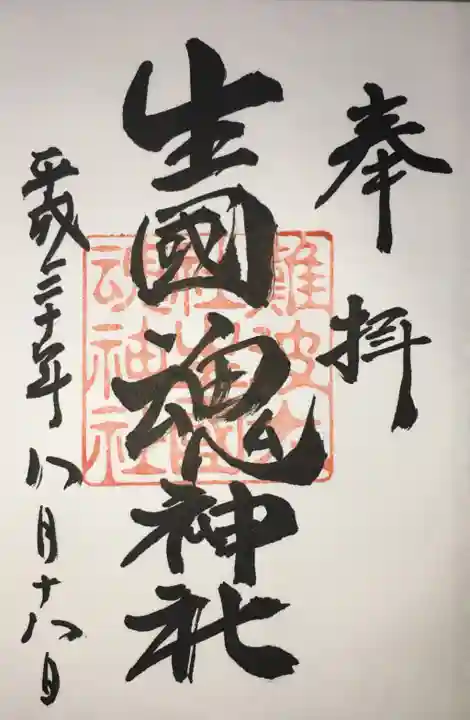 奉拝
生國魂神社
難波大
社生國
魂神社
平成三十年八月十八日